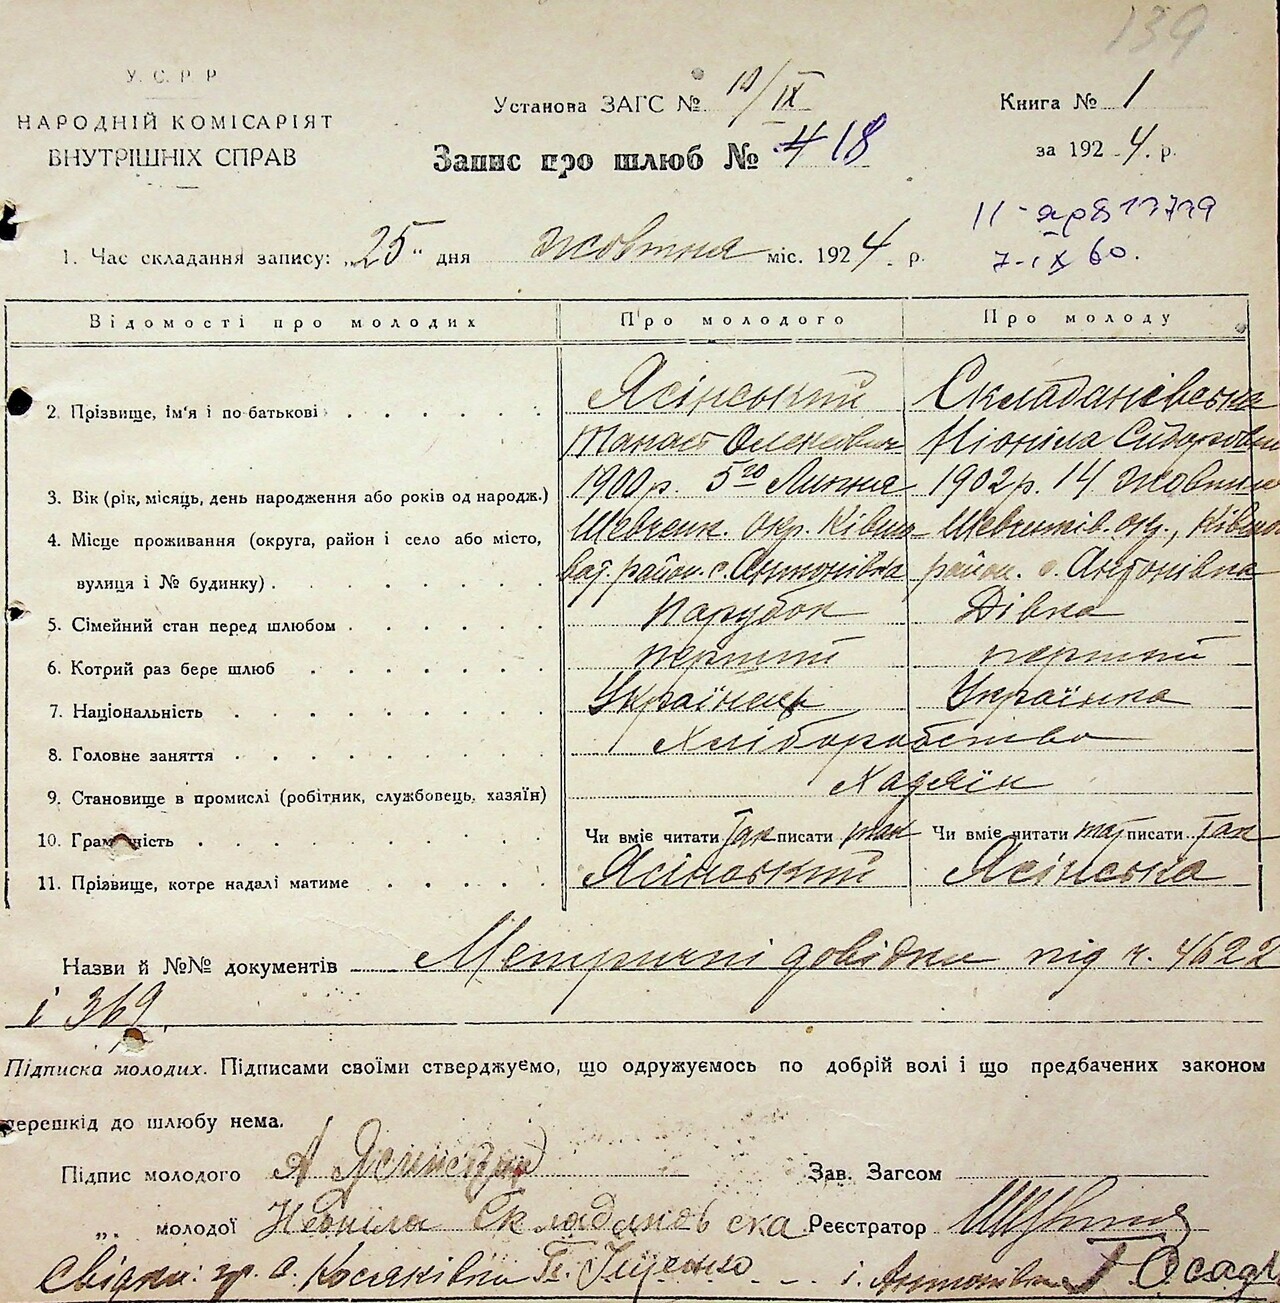 139
У. С. Р. Р
НАРОДНІЙ КОМІСАРІЯТ
ВНУТРІШНІХ СПРАВ
Установа ЗАГС № 10/IX
Запис про шлюб № 18
Книга № 1
за 1924 р.
7-IX 60.
1. Час складання запису: „25" дня жовтня міс. 1924 р.
Відомості про молодих Про молодого Про молоду
2. Прізвище, ім'я і по батькові Ясінський
Танас Олексієвич Ніоніла Сидоровна
3. Вік (рік, місяць, день народження або років од народж.) 1900 р. 5го Липня 1902 р. 14 жовтня
4. Місце проживання (округа, район і село або місто, Шевченк. окр. Ківш- Шевченків. окр., Ківш
вулиця і № будинку) ват. район. с. Антонівка район. с. Антонівка
5. Сімейний стан перед шлюбом Парубок Дівка
6. Котрий раз бере шлюб перший перший
7. Національність Українець Українка
8. Головне заняття Хліборобство
9. Становище в промислі (робітник, службовець, хазяїн) Хазяїн
10. Грамотність Чи вміє читати так писати так Чи вміє читати так писати так
11. Прізвище, котре надалі матиме Ясінський Ясінська
Назви й №№ документів Метричні довідки під ч. 4622
і 369.
Підписка молодих. Підписами своїми стверджуємо, що одружуємось по добрій волі і що предбачених законом
перешкід до шлюбу нема.
Підпис молодого А Зав. Загсом
„ молодої Неоніла Складановска Реєстратор
Свідки: гр. с. Косяківка Іщенко і. Антонівка Осад